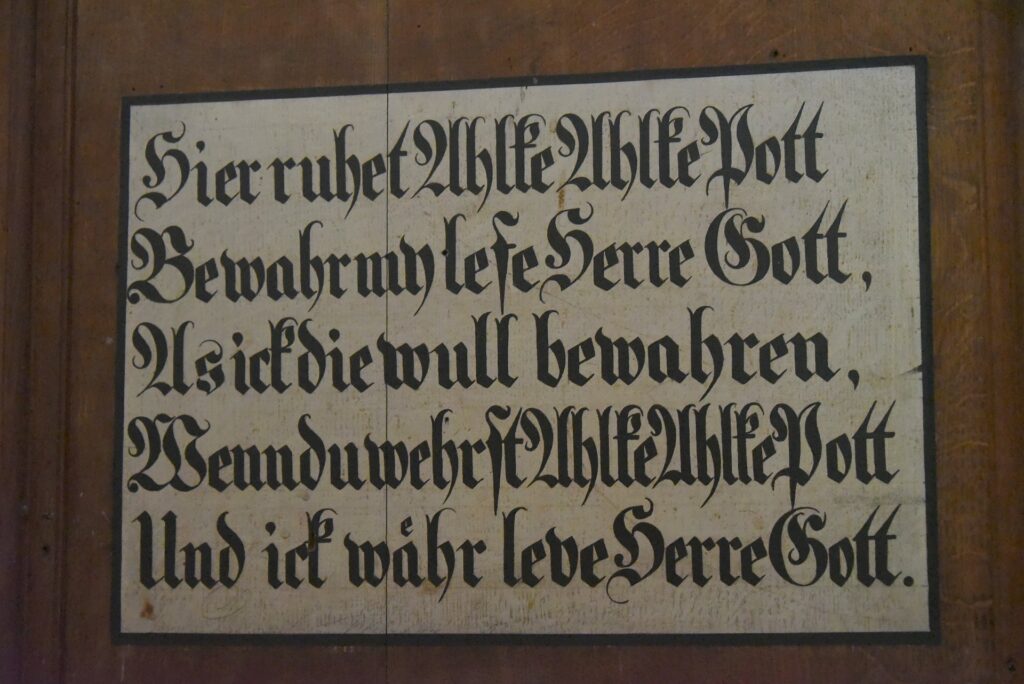 Hier ruhet Ahlke Ahlke Pott
Bewahr my lefe Herre Gott,
As ick die wull bewahren,
Wenn du wehrst Ahlke Ahlke Pott
Und ick wåhr leve Herre Gott.